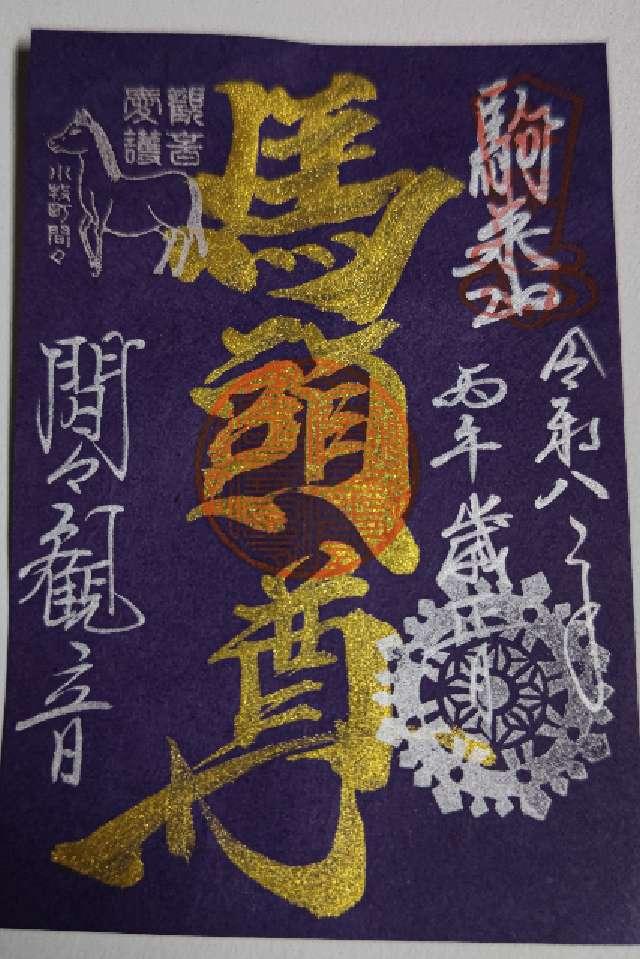 駒来山
令和八年
丙午歳正月
馬頭尊
観音
愛護
小牧町間々
間々観音